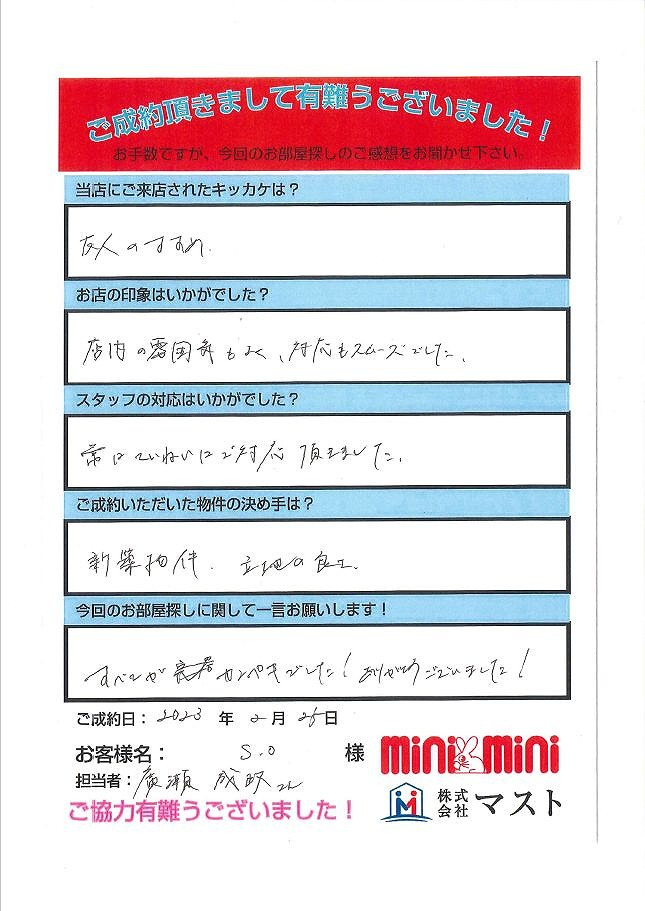 ご成約頂きまして有難うございました!
お手数ですが、今回のお部屋探しのご感想をお聞かせ下さい。
当店にご来店されたキッカケは?
友人のすすめ.
お店の印象はいかがでした?
店内の雰囲気もよく、対応もスムーズでした。
スタッフの対応はいかがでした?
常にていねいにご対応頂きました。
ご成約いただいた物件の決め手は?
新築物件. 立地の良さ.
今回のお部屋探しに関して一言お願いします!
すべてが カンペキでした! ありがとうございました!
ご成約日: 2023 年 2 月 25 日
お客様名: S.O 様
mini mini
担当者: 廣瀬 成政 さん
株式会社 マスト
ご協力有難うございました!